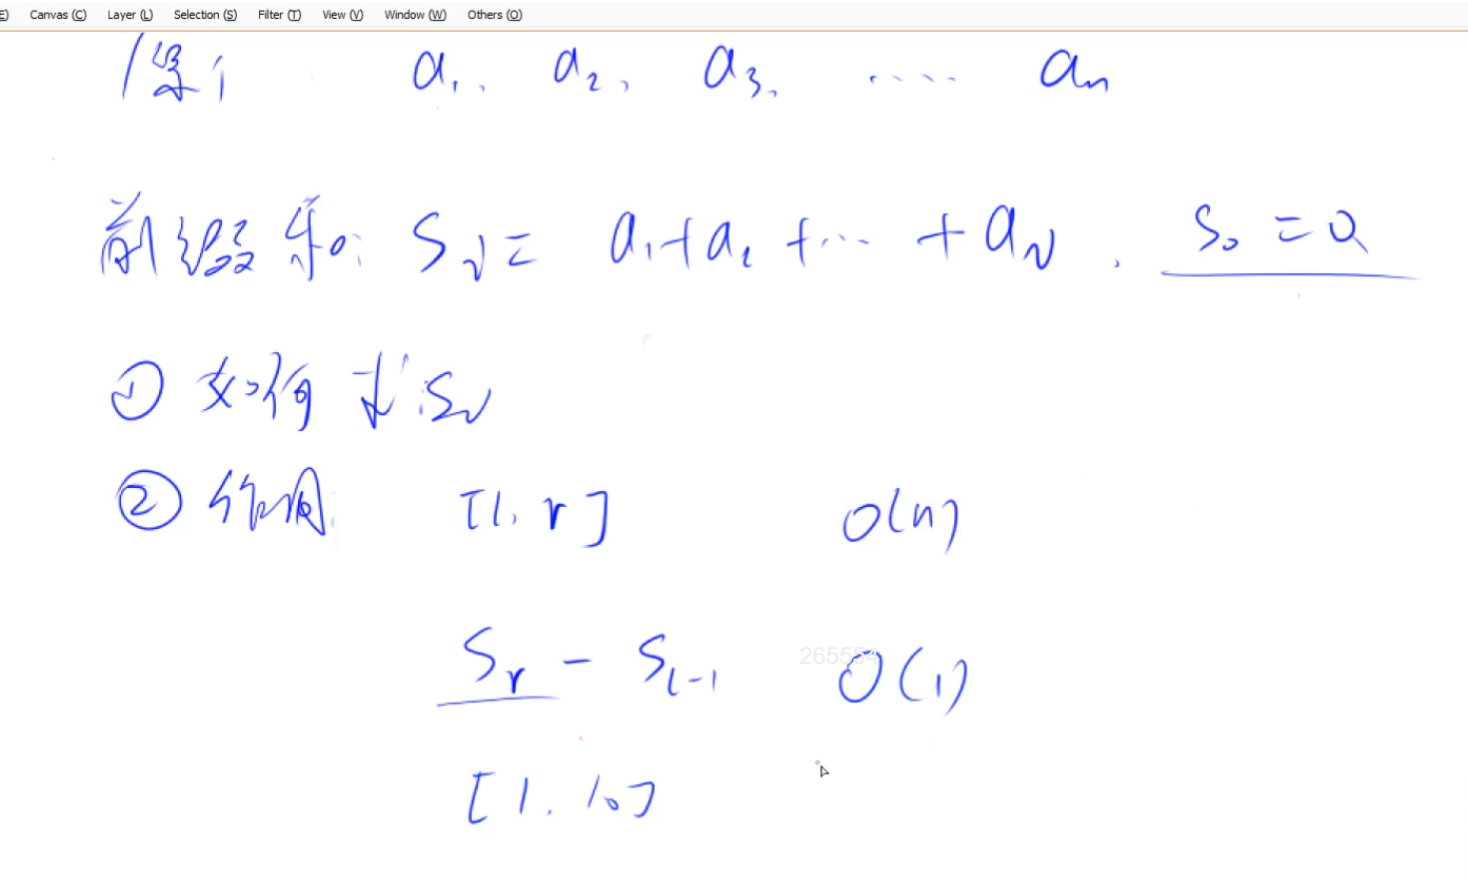 E) Canvas (C) Layer (L) Selection (S) Filter (T) View (V) Window (W) Others (O)
a₁, a₂, a₃, ..... aₙ
前缀和: Sᵢ = a₁+a₂ +... + aᵢ . S₀ = 0
① 如何求 Sᵢ
② 作用 [l, r] O(n)
Sᵣ - Sₗ₋₁ O(1)
265554
[1, 10]